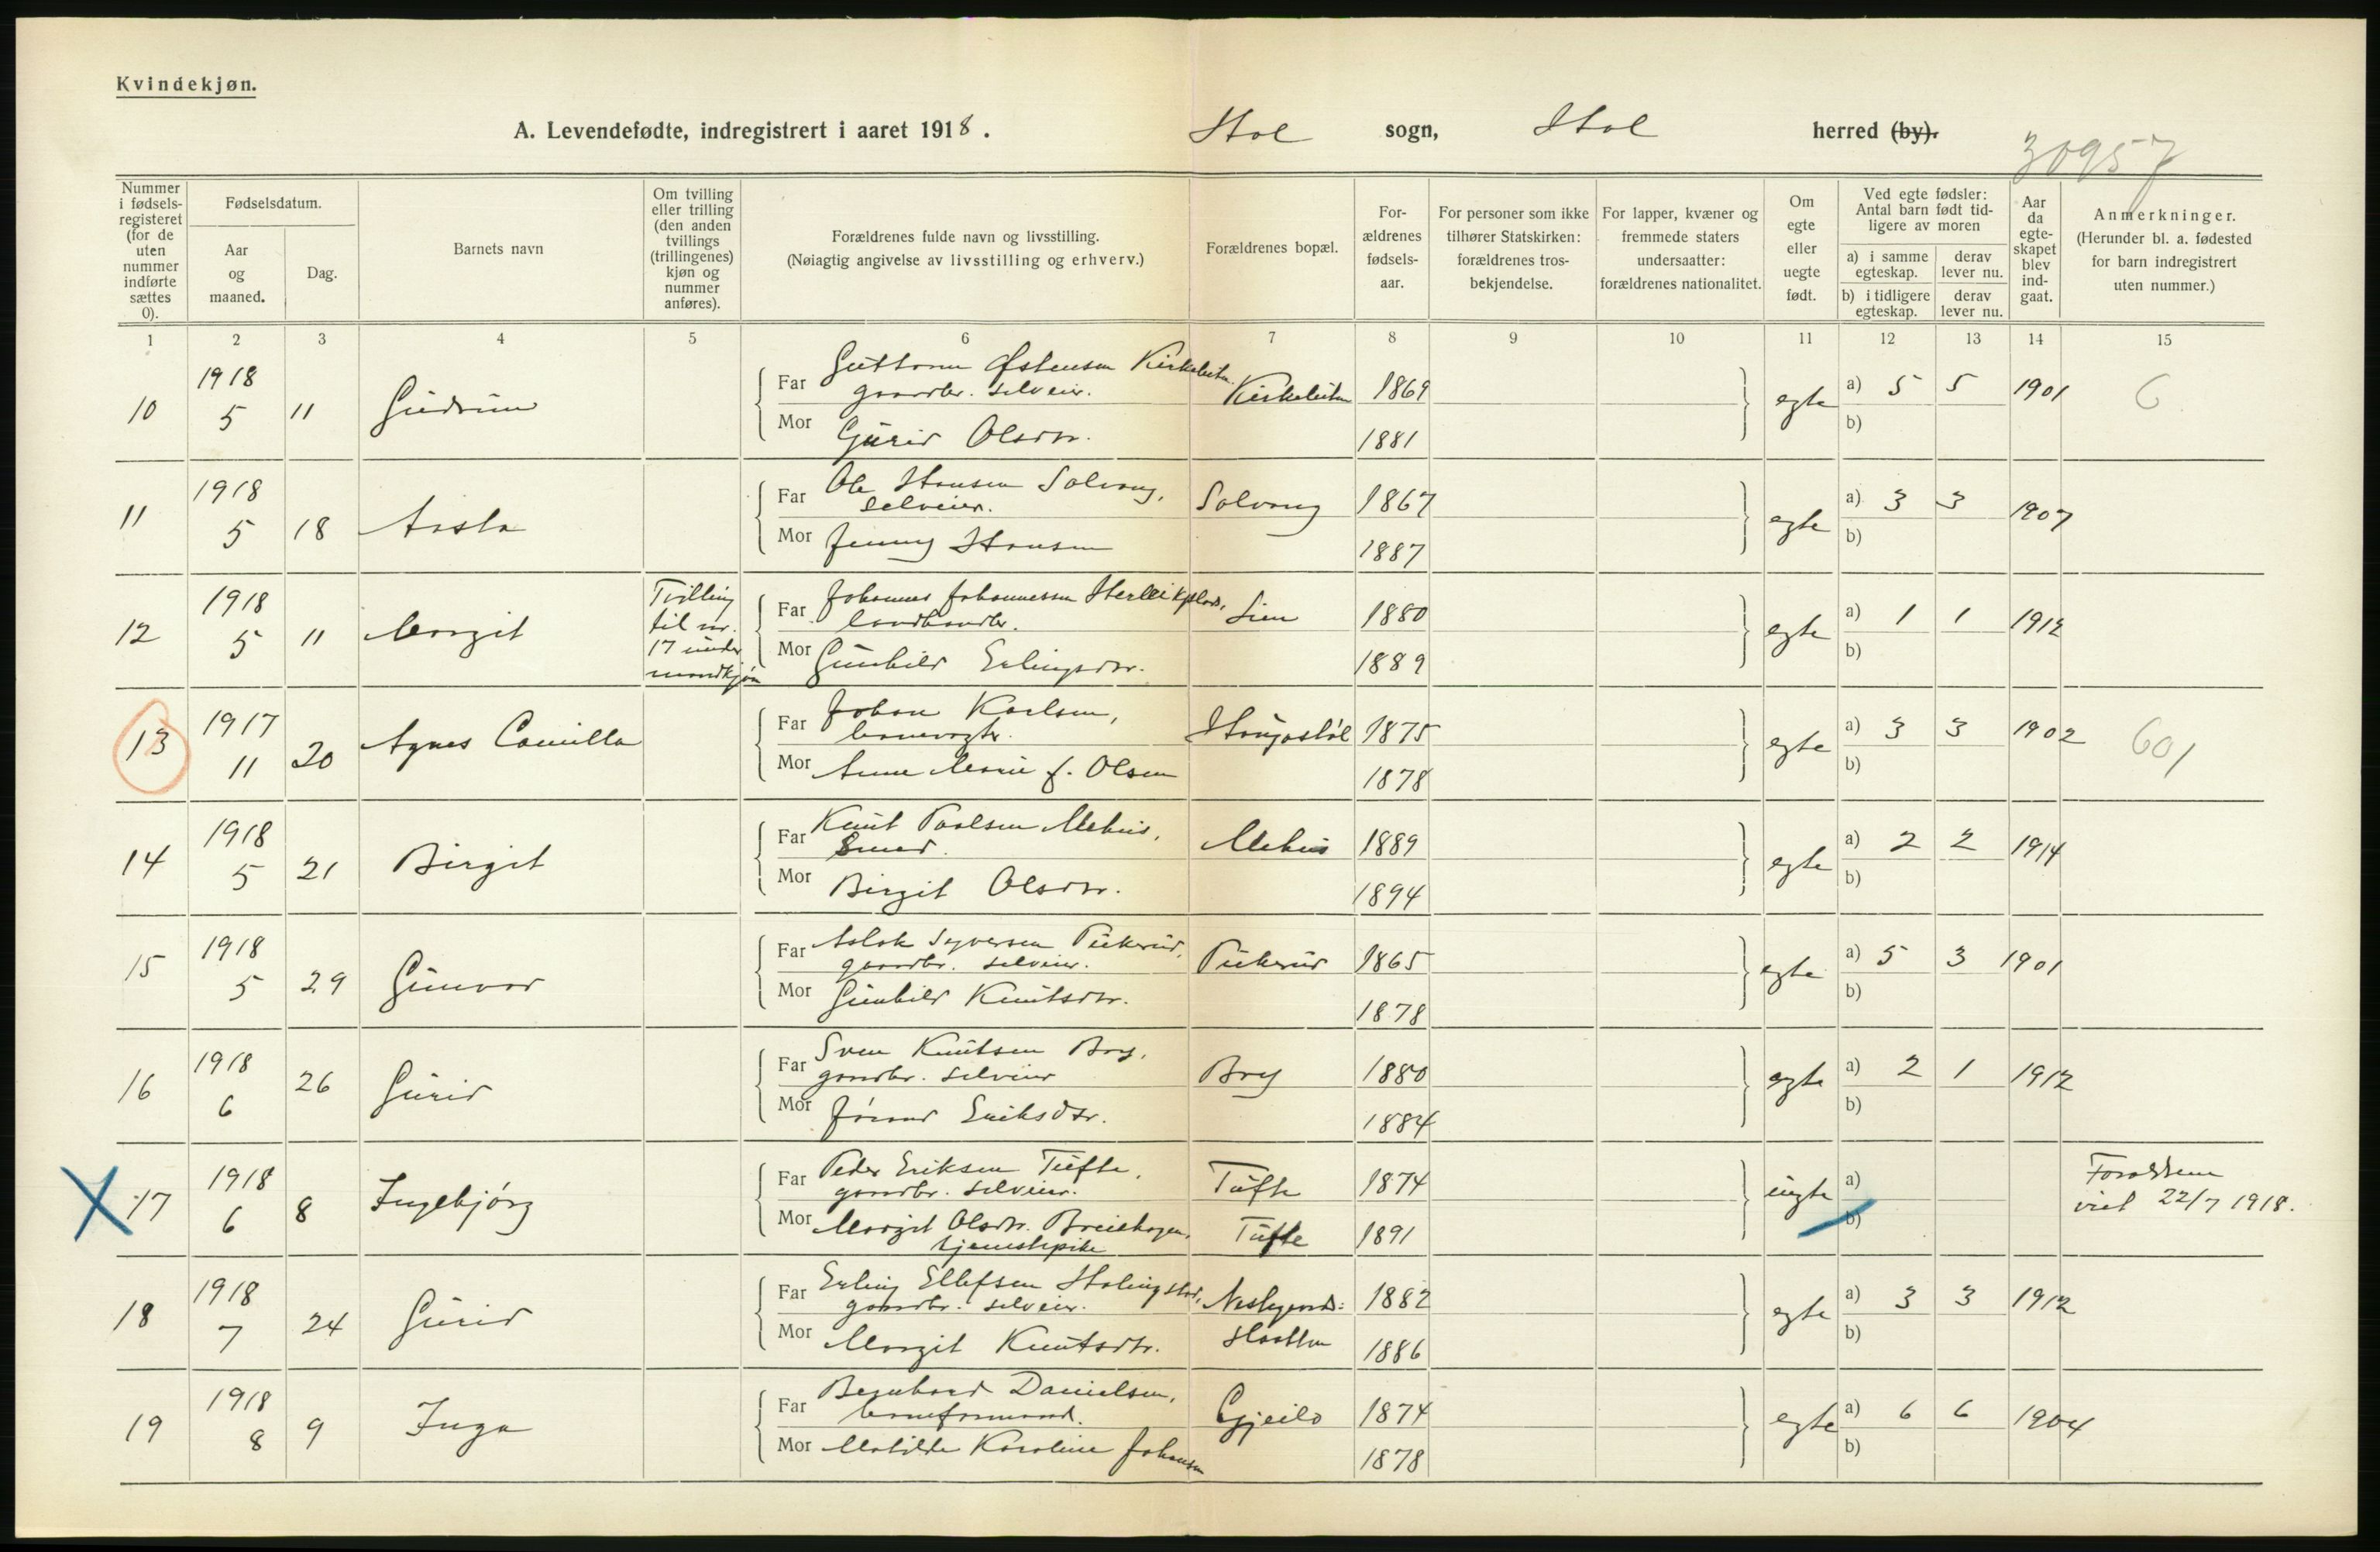 Kvindekjøn.
A. Levendefødte, indregistrert i aaret 1918. Hol sogn, Hol herred (by).
30957
Nummer i fødsels-registeret (for de uten nummer indførte sættes 0).
Fødselsdatum.
Aar og maaned.
Dag.
Barnets navn
Om tvilling eller trilling (den anden tvillings (trillingenes) kjøn og nummer anføres).
Forældrenes fulde navn og livsstilling.
(Nøiagtig angivelse av livsstilling og erhverv.)
Forældrenes bopæl.
For-ældrenes fødsels-aar.
For personer som ikke tilhører Statskirken: forældrenes tros-bekjendelse.
For lapper, kvæner og fremmede staters undersaatter: forældrenes nationalitet.
Om egte eller uegte født.
Ved egte fødsler: Antal barn født tid-ligere av moren
a) i samme egteskap. derav lever nu.
b) i tidligere egteskap. derav lever nu.
Aar da egte-skapet blev ind-gaat.
Anmerkninger.
(Herunder bl. a. fødested for barn indregistrert uten nummer.)
1 2 3 4 5 6 7 8 9 10 11 12 13 14 15
10 1918 5 11 Gudrun
Far Guttorm Østensen
gaardbr. selveier. 1869 egte a) 5 5 1901 6
Mor Gurid Olsdtr. 1881 b)
11 1918 5 18 Aasta
Far Ole Hansen Solvang, Solvang 1867 egte a) 3 3 1907
selveier.
Mor Jenny Hansen 1887 b)
12 1918 5 11 Margit
Tvilling til nr. 17 under mandkjøn
Far Johannes Johannessen Herleikplads, Lien 1880 egte a) 1 1 1912
landhandler.
Mor Gunhild Erlingsdtr. 1889 b)
13 1917 11 20 Agnes Camilla
Far Johan Karlsen, Haugastøl 1875 egte a) 3 3 1902 601
banevogter.
Mor Anne Marie f. Olsen 1878 b)
14 1918 5 21 Birgit
Far Knut Paalsen Mehus, Mehus 1889 egte a) 2 2 1914
Smed.
Mor Birgit Olsdtr. 1894 b)
15 1918 5 29 Gunvor
Far Aslak Syversen Pukerud, Pukerud 1865 egte a) 5 3 1901
gaardbr. selveier.
Mor Gunhild Knutsdtr. 1878 b)
16 1918 6 26 Gurid
Far Sven Knutsen Bry, Bry 1880 egte a) 2 1 1912
gaardbr. selveier
Mor Jørand Eriksdtr. 1884 b)
X 17 1918 6 8 Ingebjørg
Far Peder Eriksen Tufte, Tufte 1874 uegte a) Forældrene
gaardbr. selveier. viet 22/7 1918.
Mor Margit Olsdtr. Breiehagen, Tufte 1891 b)
tjenestepike
18 1918 7 24 Gurid
Far Erling Ellefsen 1882 egte a) 3 3 1912
gaardbr. selveier.
Mor Margit Knutsdtr. 1886 b)
19 1918 8 9 Inga
Far Bernhard Danielsen, Gjeilo 1874 egte a) 6 6 1904
baneformand.
Mor Matilde Karoline Johansen 1878 b)